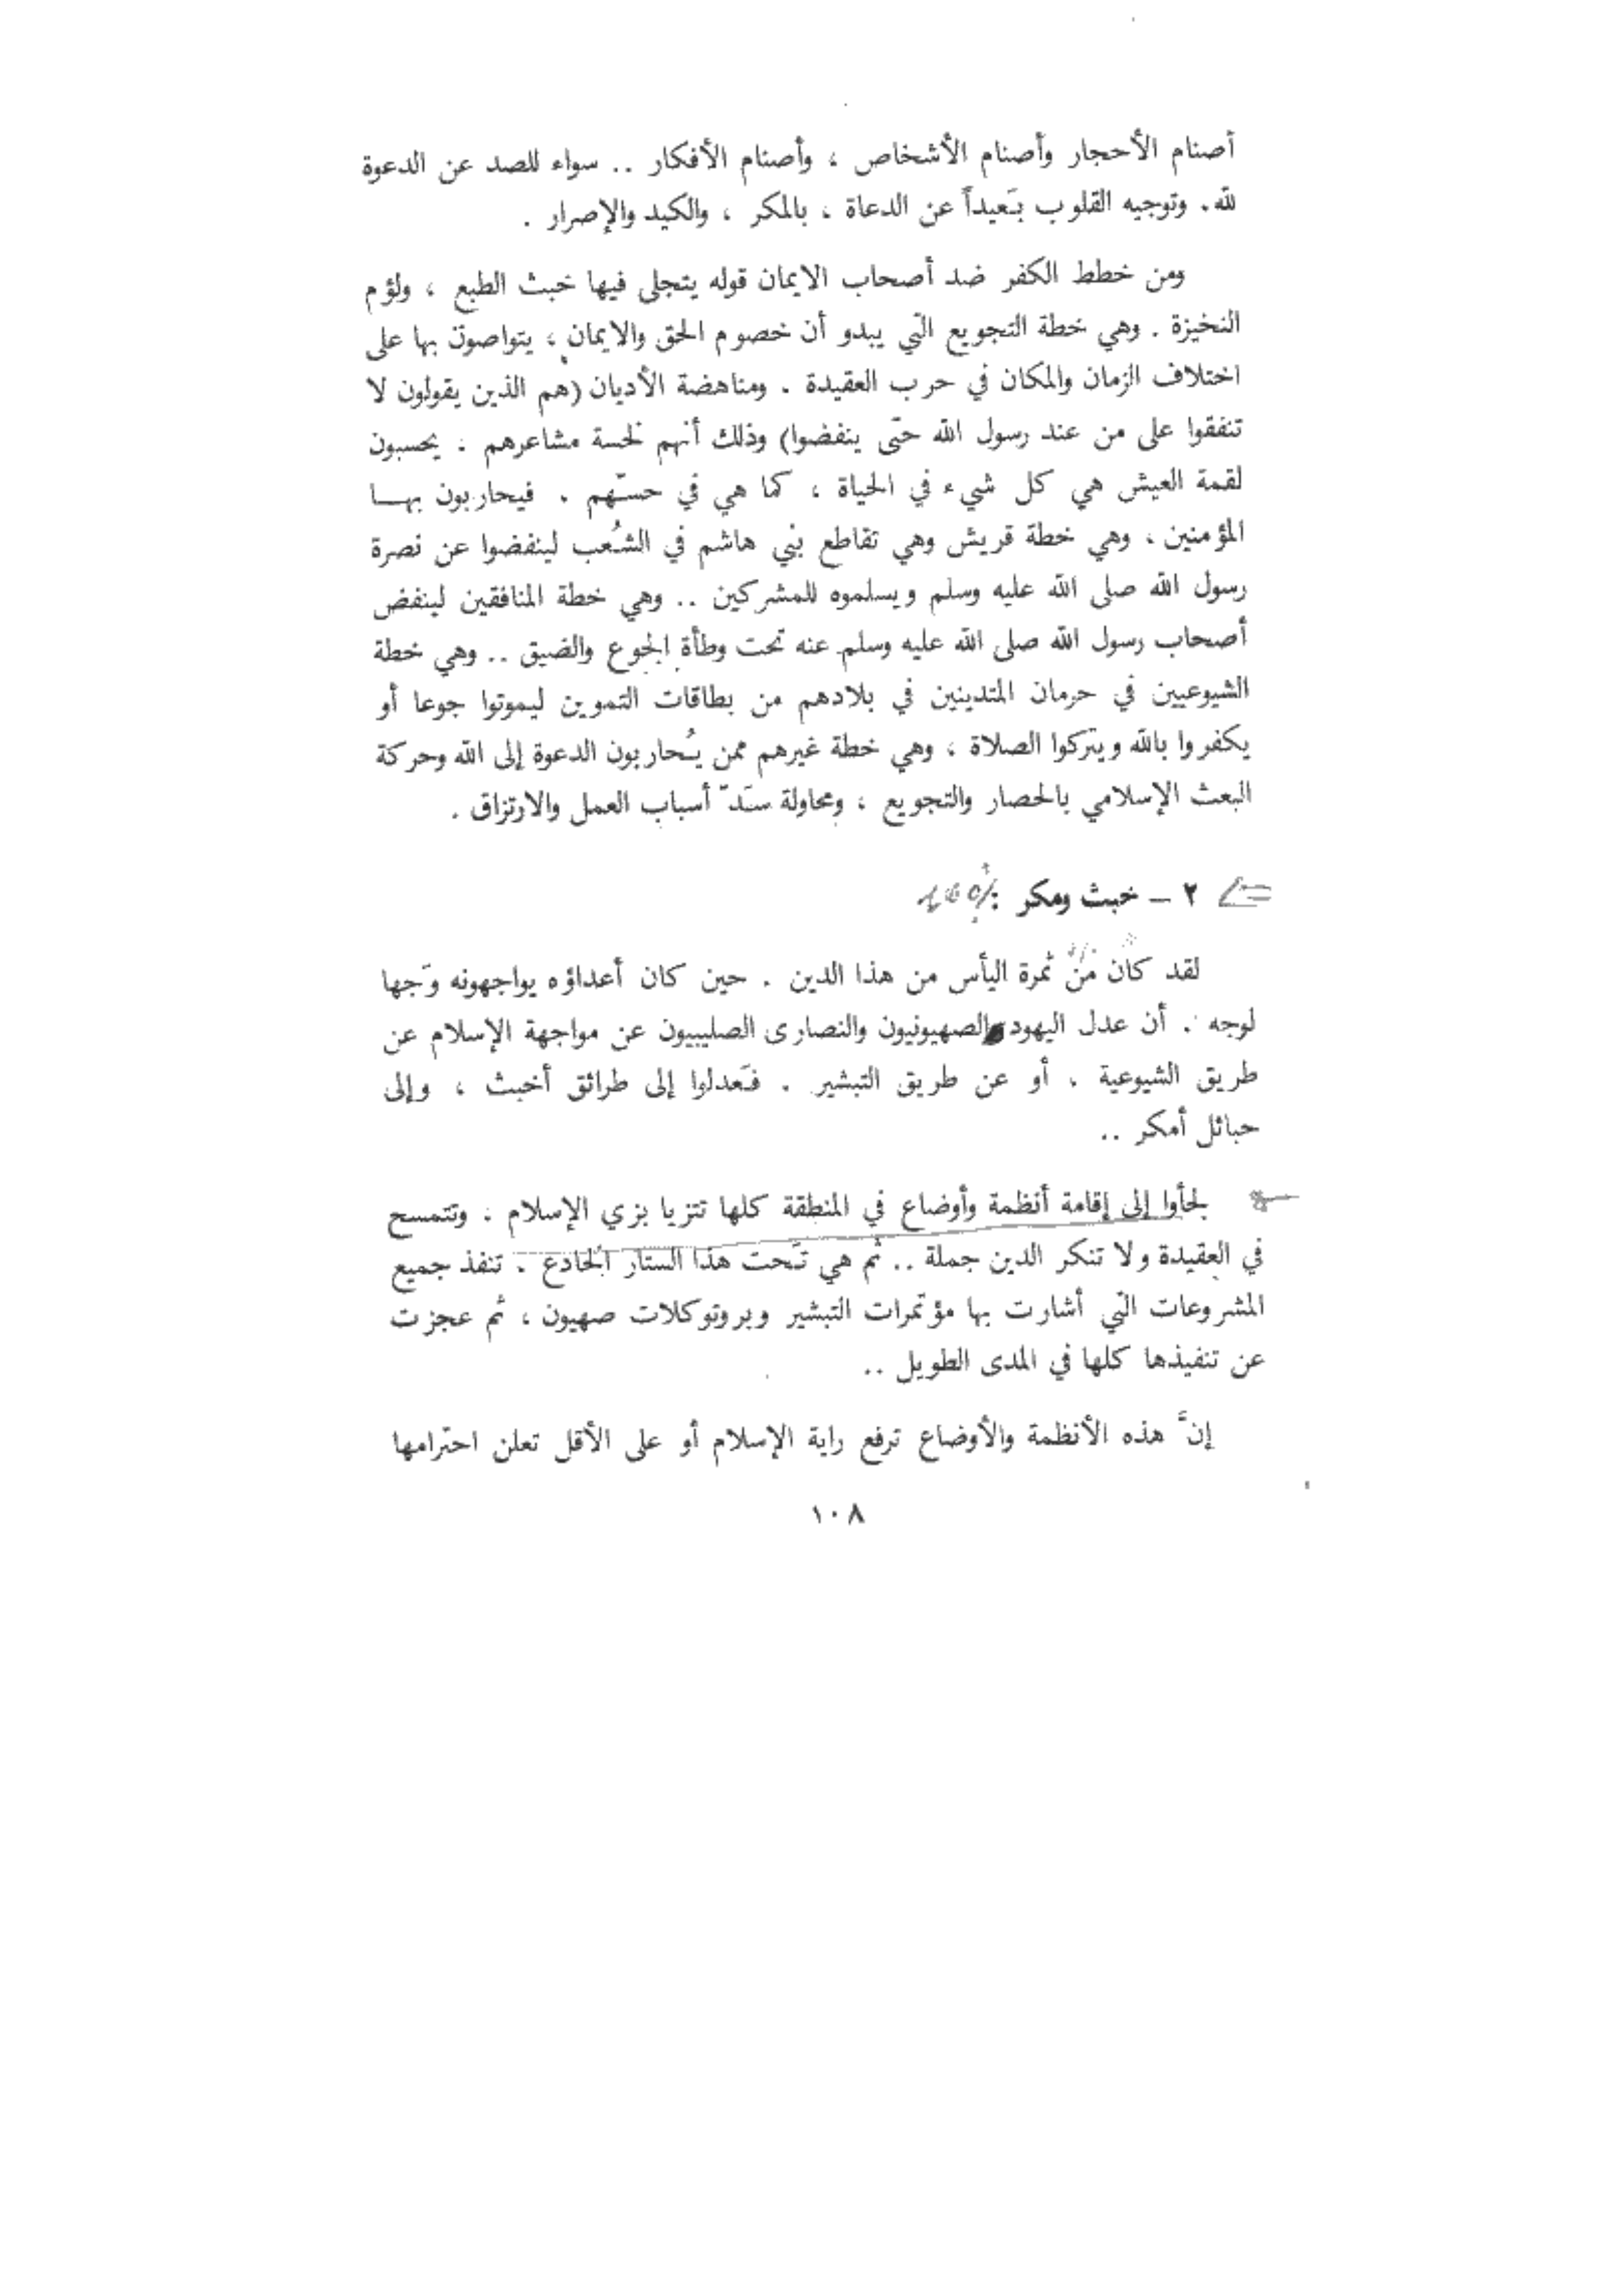 أصنام الأحجار وأصنام الأشخاص ، وأصنام الأفكار .. سواء للصد عن الدعوة
لله. وتوجيه القلوب بَعيداً عن الدعاة ، بالمكر ، والكيد والإصرار .
ومن خطط الكفر ضد أصحاب الايمان قوله يتجلى فيها خبث الطبع ، ولؤم
النخيزة . وهي خطة التجويع التي يبدو أن خصوم الحق والايمان ، يتواصون بها على
اختلاف الزمان والمكان في حرب العقيدة . ومناهضة الأديان (هم الذين يقولون لا
تنفقوا على من عند رسول الله حتى ينفضوا) وذلك أنهم لخسة مشاعرهم . يحسبون
لقمة العيش هي كل شيء في الحياة ، كما هي في حسّهم . فيحاربون بهــا
المؤمنين ، وهي خطة قريش وهي تقاطع بني هاشم في الشُعب لينفضوا عن نصرة
رسول الله صلى الله عليه وسلم ويسلموه للمشركين .. وهي خطة المنافقين لينفض
أصحاب رسول الله صلى الله عليه وسلم عنه تحت وطأة الجوع والضيق .. وهي خطة
الشيوعيين في حرمان المتدينين في بلادهم من بطاقات التموين ليموتوا جوعا أو
يكفروا بالله ويتركوا الصلاة ، وهي خطة غيرهم ممن يُحاربون الدعوة إلى الله وحركة
البعث الإسلامي بالحصار والتجويع ، ومحاولة سَدّ أسباب العمل والارتزاق .
٢ – خبث ومكر :
لقد كان من ثمرة اليأس من هذا الدين . حين كان أعداؤه يواجهونه وَجها
لوجه . أن عدل اليهود الصهيونيون والنصارى الصليبيون عن مواجهة الإسلام عن
طريق الشيوعية . أو عن طريق التبشير . فَعدلوا إلى طرائق أخبث ، وإلى
حبائل أمكر ..
لجأوا إلى إقامة أنظمة وأوضاع في المنطقة كلها تتزيا بزي الإسلام . وتتمسح
في العقيدة ولا تنكر الدين جملة .. ثم هي تَحت هذا الستار الخادع . تنفذ جميع
المشروعات التي أشارت بها مؤتمرات التبشير وبروتوكلات صهيون ، ثم عجزت
عن تنفيذها كلها في المدى الطويل ..
إنَّ هذه الأنظمة والأوضاع ترفع راية الإسلام أو على الأقل تعلن احترامها
١٠٨